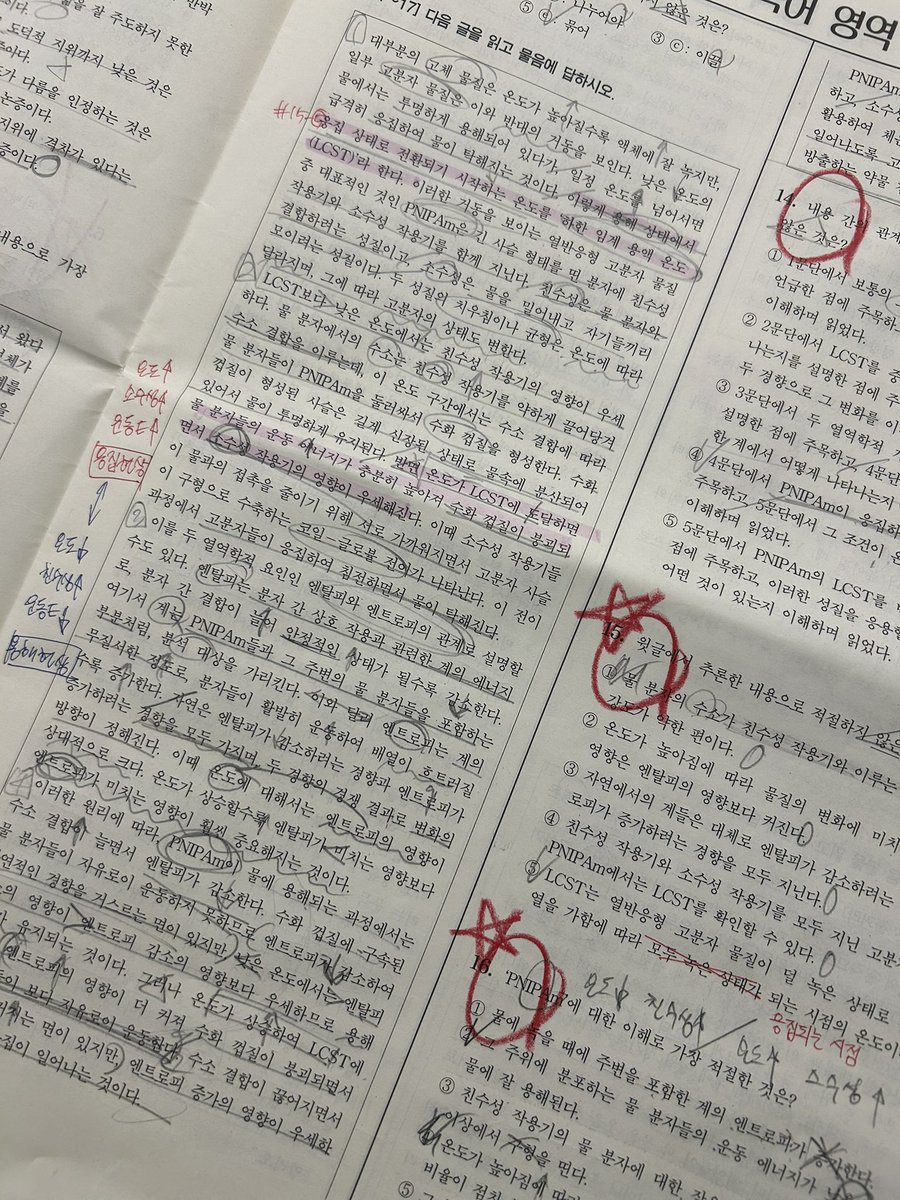 반박
을 잘 주도하지 못한
도덕적 지위까지 낮은 것은
가 다름을 인정하는 것은
논증이다.
지위에 격차가 있다는
증이다.
내용으로 가장
서 왔다
⑤ ⓓ
나누어야
묶어
것은?
③ ⓒ: 이끌
어 영역
017] 다음 글을 읽고 물음에 답하시오.
대부분의 고체 물질은 온도가 높아질수록 액체에 잘 녹지만,
일부 고분자 물질은 이와 반대의 거동을 보인다. 낮은 온도의
물에서는 투명하게 용해되어 있다가, 일정 온도를 넘어서면
급격히 응집하여 물이 탁해지는 것이다. 이렇게 용해 상태에서
응집 상태로 전환되기 시작하는 온도를 '하한 임계 용액 온도
(LCST)'라 한다. 이러한 거동을 보이는 열반응형 고분자 물질
중 대표적인 것인 PNIPAm은 긴 사슬 형태를 띤 분자에 친수성
작용기와 소수성 작용기를 함께 지닌다. 친수성은 물 분자와
결합하려는 성질이고, 소수성은 물을 밀어내고 자기들끼리
모이려는 성질이다. 두 성질의 치우침이나 균형은 온도에 따라
달라지며, 그에 따라 고분자의 상태도 변한다.
LCST보다 낮은 온도에서는 친수성 작용기의 영향이 우세
하다. 물 분자에서의 수소는 친수성 작용기를 약하게 끌어당겨
수소 결합을 이루는데, 이 온도 구간에서는 수소 결합에 따라
물 분자들이 PNIPAm을 둘러싸서 수화 껍질을 형성한다. 수화
껍질이 형성된 사슬은 길게 신장된 상태로 물속에 분산되어
있어서 물이 투명하게 유지된다. 반면 온도가 LCST에 도달하면
물 분자들의 운동 에너지가 충분히 높아져 수화 껍질이 붕괴되
면서 소수성 작용기의 영향이 우세해진다. 이때 소수성 작용기들
이 물과의 접촉을 줄이기 위해 서로 가까워지면서 고분자 사슬
이 구형으로 수축하는 코일-글로불 전이가 나타난다. 이 전이
과정에서 고분자들이 응집하여 침전하면서 물이 탁해진다.
이를 두 열역학적 요인인 엔탈피와 엔트로피의 관계로 설명할
수도 있다. 엔탈피는 분자 간 상호 작용과 관련한 계의 에너지
로, 분자 간 결합이 늘어 안정적인 상태가 될수록 감소한다.
여기서 계는 PNIPAm들과 그 주변의 물 분자들을 포함하는
부분처럼, 분석 대상을 가리킨다. 이와 달리 엔트로피는 계의
무질서한 정도로, 분자들이 활발히 운동하여 배열이 흐트러질
수록 증가한다. 자연은 엔탈피가 감소하려는 경향과 엔트로피가
증가하려는 경향을 모두 가지며 두 경향의 경쟁 결과로 변화의
방향이 정해진다. 이때 온도에 대해서는 엔트로피의 영향이
상대적으로 크다. 온도가 상승할수록 엔탈피가 미치는 영향보다
엔트로피가 미치는 영향이 훨씬 중요해지는 것이다.
이러한 원리에 따라 PNIPAm이 물에 용해되는 과정에서는
수소 결합이 늘면서 엔탈피가 감소한다. 수화 껍질에 구속된
물 분자들이 자유로이 운동하지 못하므로 엔트로피가 감소하여
연적인 경향을 거스르는 면이 있지만, 낮은 온도에서는 엔탈피
의 영향이 엔트로피 감소의 영향보다 우세하므로 용해
가 유지되는 것이다. 그러나 온도가 상승하여 LCST에
엔트로피의 영향이 더 커져 수화 껍질이 붕괴되면서
들이 보다 자유로이 운동한다. 수소 결합이 끊어지면서
는 면이 있지만, 엔트로피 증가의 영향이 우세한
집이 일어나는 것이다.
#15-⑤
온도↑
소수성↑
운동E↑
응집현상
온도↓
친수성↑
운동E↓
용해현상
PNIPAm
하고, 소수성
활용하여 체
일어나도록 고
방출하는 약물
14. 내용 간의 관계
않은 것은?
① 1문단에서 보통의
언급한 점에 주목하
이해하며 읽었다.
② 2문단에서 LCST를 중
나는지를 설명한 점에 주
두 경향으로 그 변화를 이
③ 3문단에서 두 열역학적
설명한 점에 주목하고, 4문단
한 계에서 어떻게 나타나는지
④ 4문단에서 PNIPAm이 응집하
주목하고, 5문단에서 그 조건이 온
이해하며 읽었다.
⑤ 5문단에서 PNIPAm의 LCST를
점에 주목하고, 이러한 성질을 응용한
어떤 것이 있는지 이해하며 읽었다.
15. 윗글에서 추론한 내용으로 적절하지 않은
① 물 분자의 수소가 친수성 작용기와 이루는
강도가 약한 편이다.
② 온도가 높아짐에 따라 물질의 변화에 미치
영향은 엔탈피의 영향보다 커진다.
③ 자연에서의 계들은 대체로 엔탈피가 감소하려는
로피가 증가하려는 경향을 모두 지닌다.
④ 친수성 작용기와 소수성 작용기를 모두 지닌 고분
PNIPAm에서는 LCST를 확인할 수 있다.
⑤ LCST는 열반응형 고분자 물질이 덜 녹은 상태로
열을 가함에 따라 모두 녹은 상태가 되는 시점의 온도이
응집되는 시점
16. PNIPAm에 대한 이해로 가장 적절한 것은?
온도↓ 친수성↑
온도↑ 소수성↑
① 물에 녹을 때에 주변을 포함한 계의 엔트로피가 증가한다.
주위에 분포하는 물 분자들의 운동 에너지가
물에 잘 용해된다.
③ 친수성 작용기의 물 분자에 대한
이상에서 구형을 띤다.
온도가 높아짐에 따라
⑤
비율이 점차